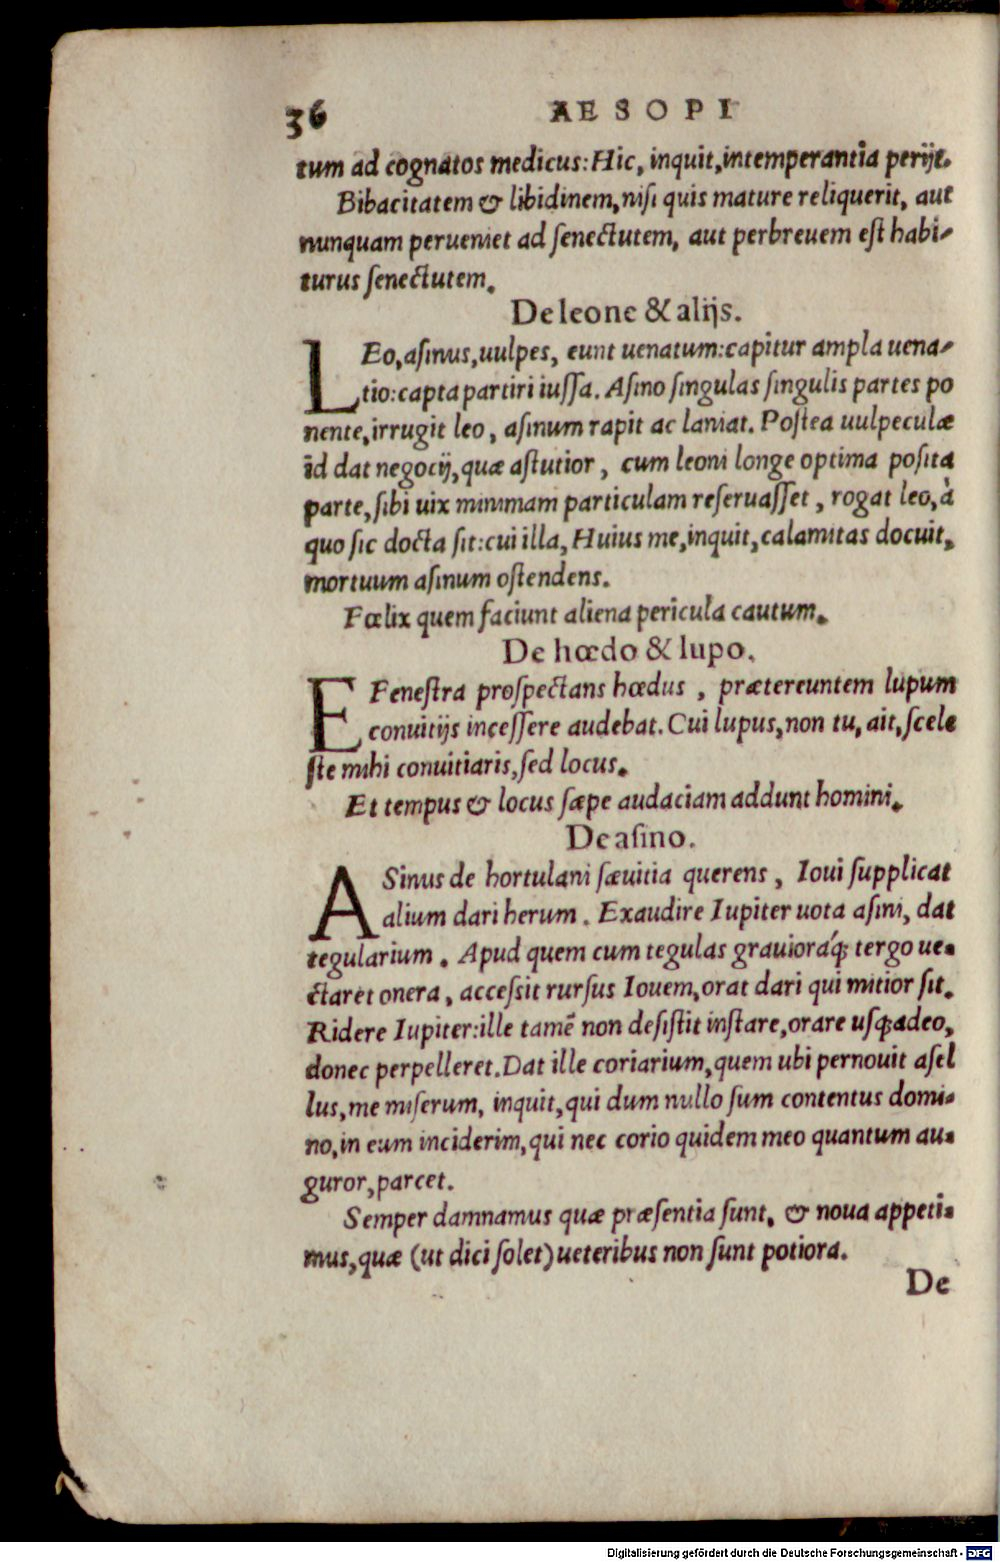 36 AESOPI
tum ad cognatos medicus: Hic, inquit, intemperantia perijt.
Bibacitatem & libidinem, niſi quis mature reliquerit, aut
nunquam perueniet ad ſenectutem, aut perbreuem eſt habi-
turus ſenectutem.
De leone & alijs.
LEo, aſinus, uulpes, eunt uenatum: capitur ampla uena-
tio: capta partiri iuſſa. Aſino ſingulas ſingulis partes po
nente, irrugit leo, aſinum rapit ac laniat. Poſtea uulpeculæ
id dat negocij, quæ aſtutior, cum leoni longe optima poſita
parte, ſibi uix minimam particulam reſeruaſſet, rogat leo, à
quo ſic docta ſit: cui illa, Huius me, inquit, calamitas docuit,
mortuum aſinum oſtendens.
Fœlix quem faciunt aliena pericula cautum.
De hœdo & lupo.
E Feneſtra proſpectans hœdus, prætereuntem lupum
conuitijs inceſſere audebat. Cui lupus, non tu, ait, ſcele
ſte mihi conuitiaris, ſed locus.
Et tempus & locus ſæpe audaciam addunt homini.
De aſino.
ASinus de hortulani ſæuitia querens, Ioui ſupplicat
alium dari herum. Exaudire Iupiter uota aſini, dat
tegularium. Apud quem cum tegulas grauioráq; tergo ue-
ctaret onera, acceſsit rurſus Iouem, orat dari qui mitior ſit.
Ridere Iupiter: ille tamẽ non deſiſtit inſtare, orare uſq; adeo,
donec perpelleret. Dat ille coriarium, quem ubi pernouit aſel
lus, me miſerum, inquit, qui dum nullo ſum contentus domi-
no, in eum inciderim, qui nec corio quidem meo quantum au-
guror, parcet.
Semper damnamus quæ præſentia ſunt, & noua appeti-
mus, quæ (ut dici ſolet) ueteribus non ſunt potiora.
De
Digitalisierung gefördert durch die Deutsche Forschungsgemeinschaft - DFG